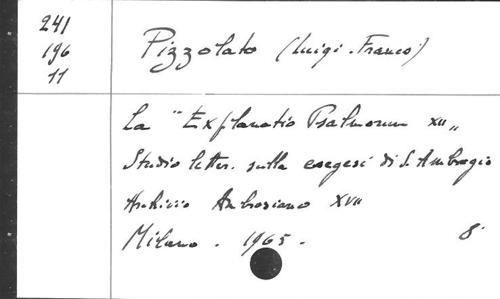 241
196
11
Pizzolato (Luigi-Franco)
La "Explanatio Psalmorum XII„
Studio letter. sulla esegesi di S. Ambrogio
Archivio Ambrosiano XVII
Milano . 1965 . 8°